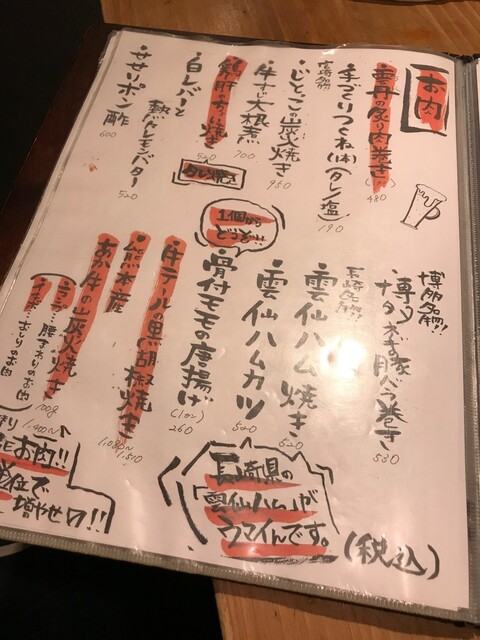 お肉
雲丹の炙り肉巻き
480
手づくりつくね(1本)(タレ/塩)
190
宮崎名物
じとっこの炭火焼き
950
牛すじ大根煮
700
焼き
520
白レバーと
熱々レモンバター
520
ササリポン酢
600
タレ焼き
1個から
どうぞ!!
博多名物!
博多
豚バラ巻き
530
長崎名物!
雲仙ハム焼き
620
雲仙ハムカツ
520
骨付モモの唐揚げ
(1コ)
260
牛テールの黒胡椒焼き
1,510
熊本産
あか牛の炭火焼き
1,080〜
100g
1,400〜
イチボ…おしりのお肉
お肉!!
単位で
増やせロ!!
長崎県の
「雲仙ハム」が
ウマイんです。
(税込)